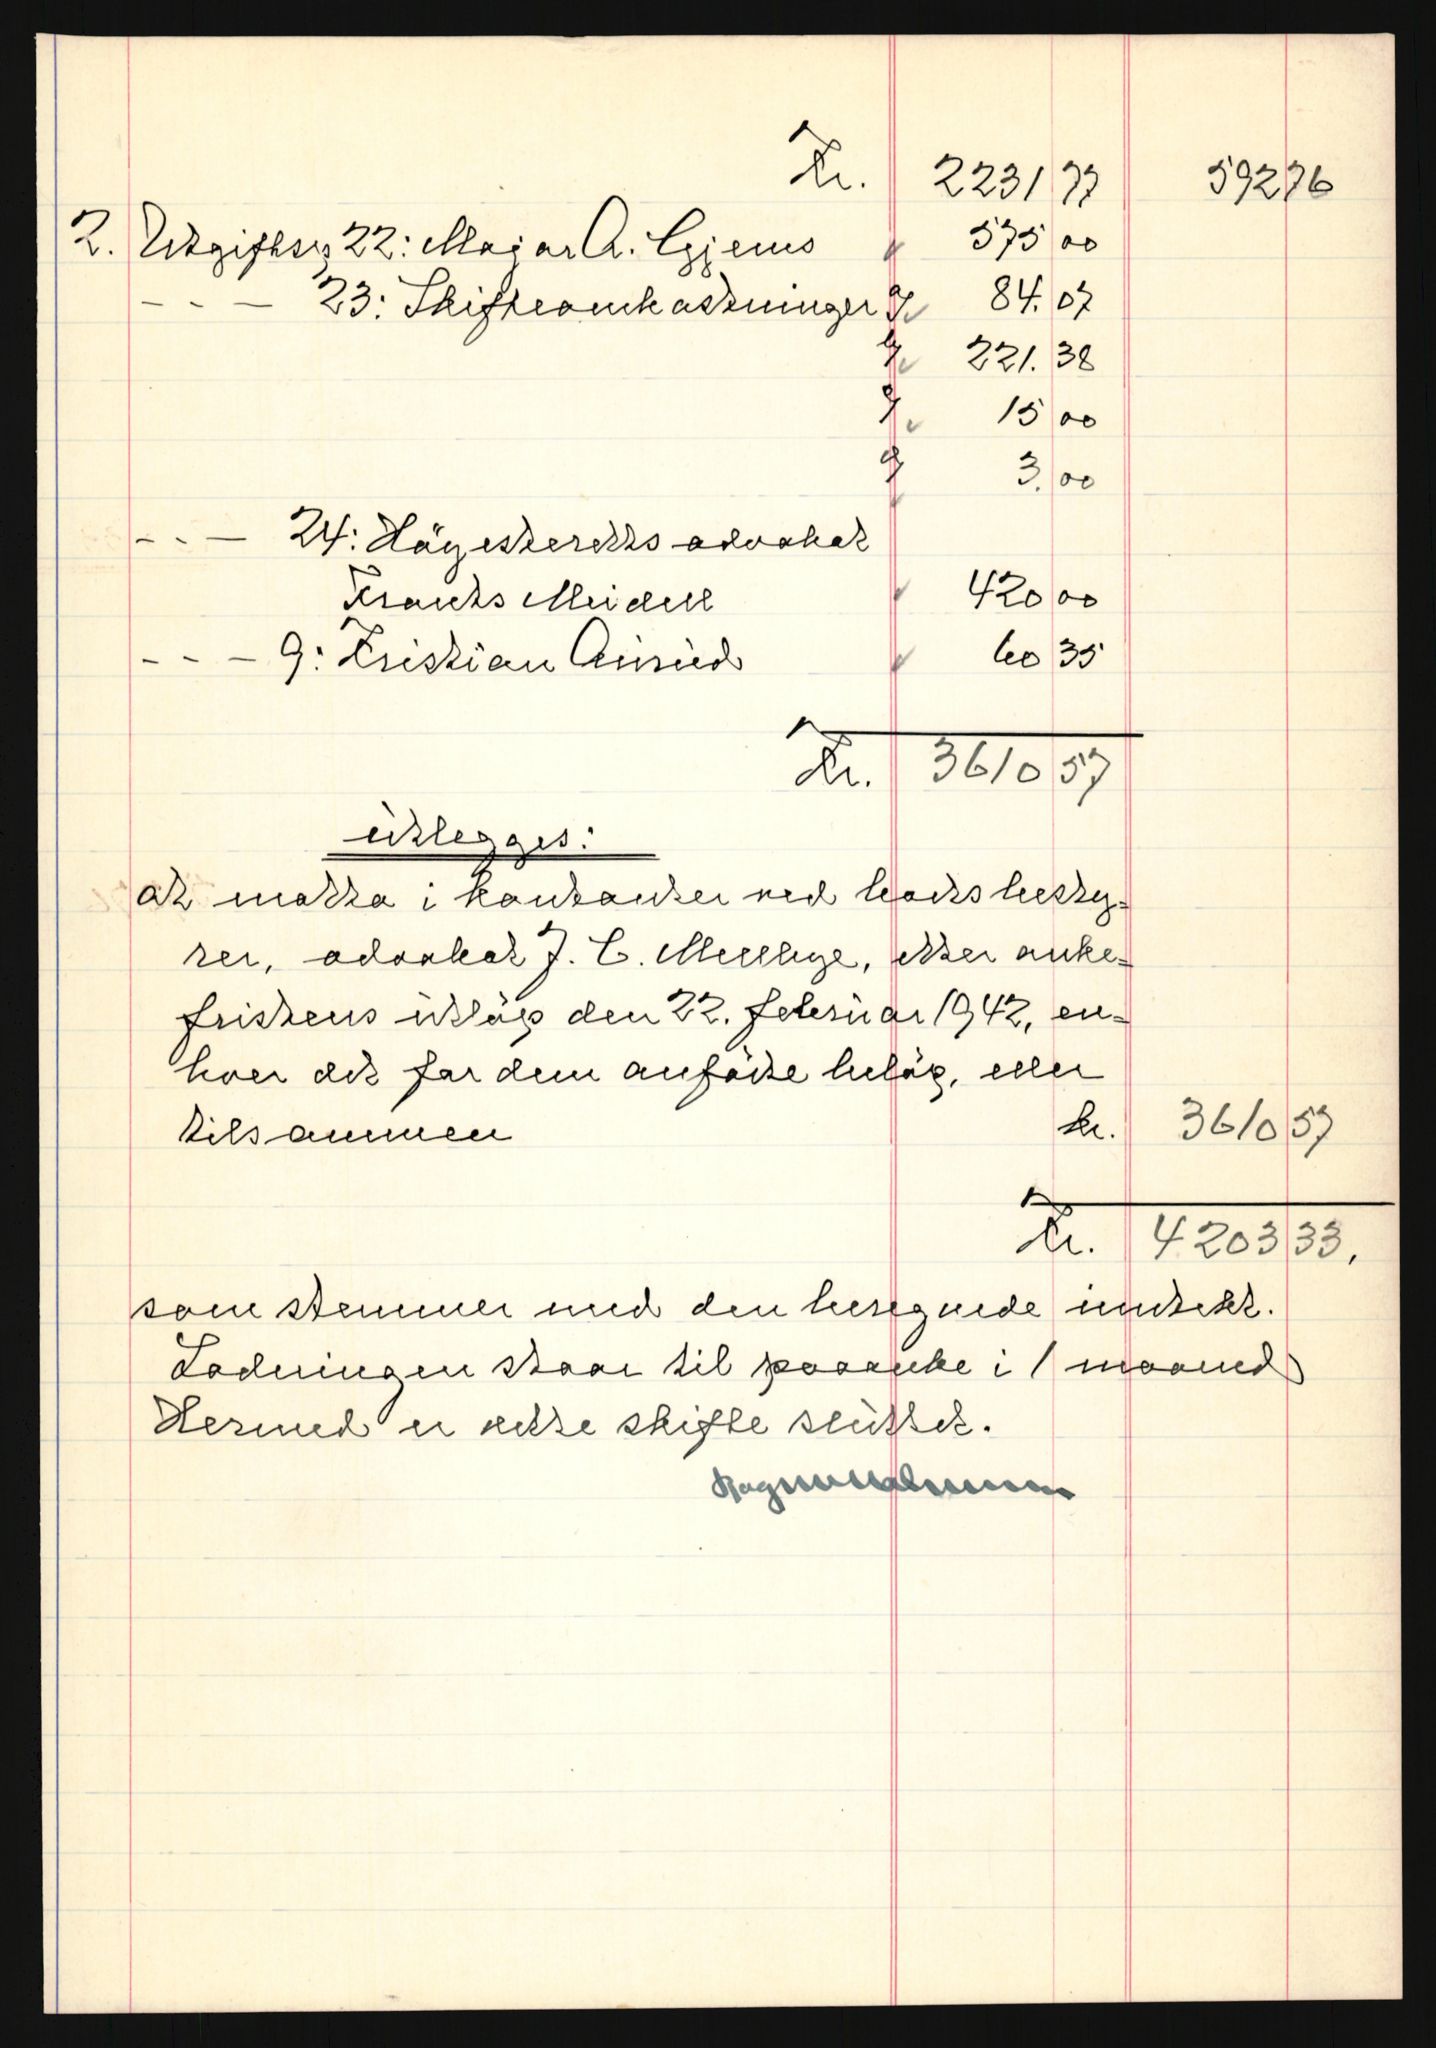 Kr. 2231 77 592 76
2. Utgiftsbg 22: Major A. Gjems 575 00
- - - 23: Skifteomkostninger 84. 07
221. 38
15 00
3. 00
- - - 24: Höyesteretts advokat
Frants Meidell 420 00
- - - 9: Kristian 60 35
Kr. 3610 57
utlegges:
at motta i kontanter ved bobsbesty-
rer, advokat J. C. Mellbye, etter anke-
fristens utlöp den 22. februar 1942, en-
hver det for dem anförte belöp, eller
tilsammen kr. 3610 57
Kr. 4203 33.
som stemmer med den beregnede inntekt.
Lodningen staar til paaanke i 1 maaned
Hermed er dette skifte sluttet.